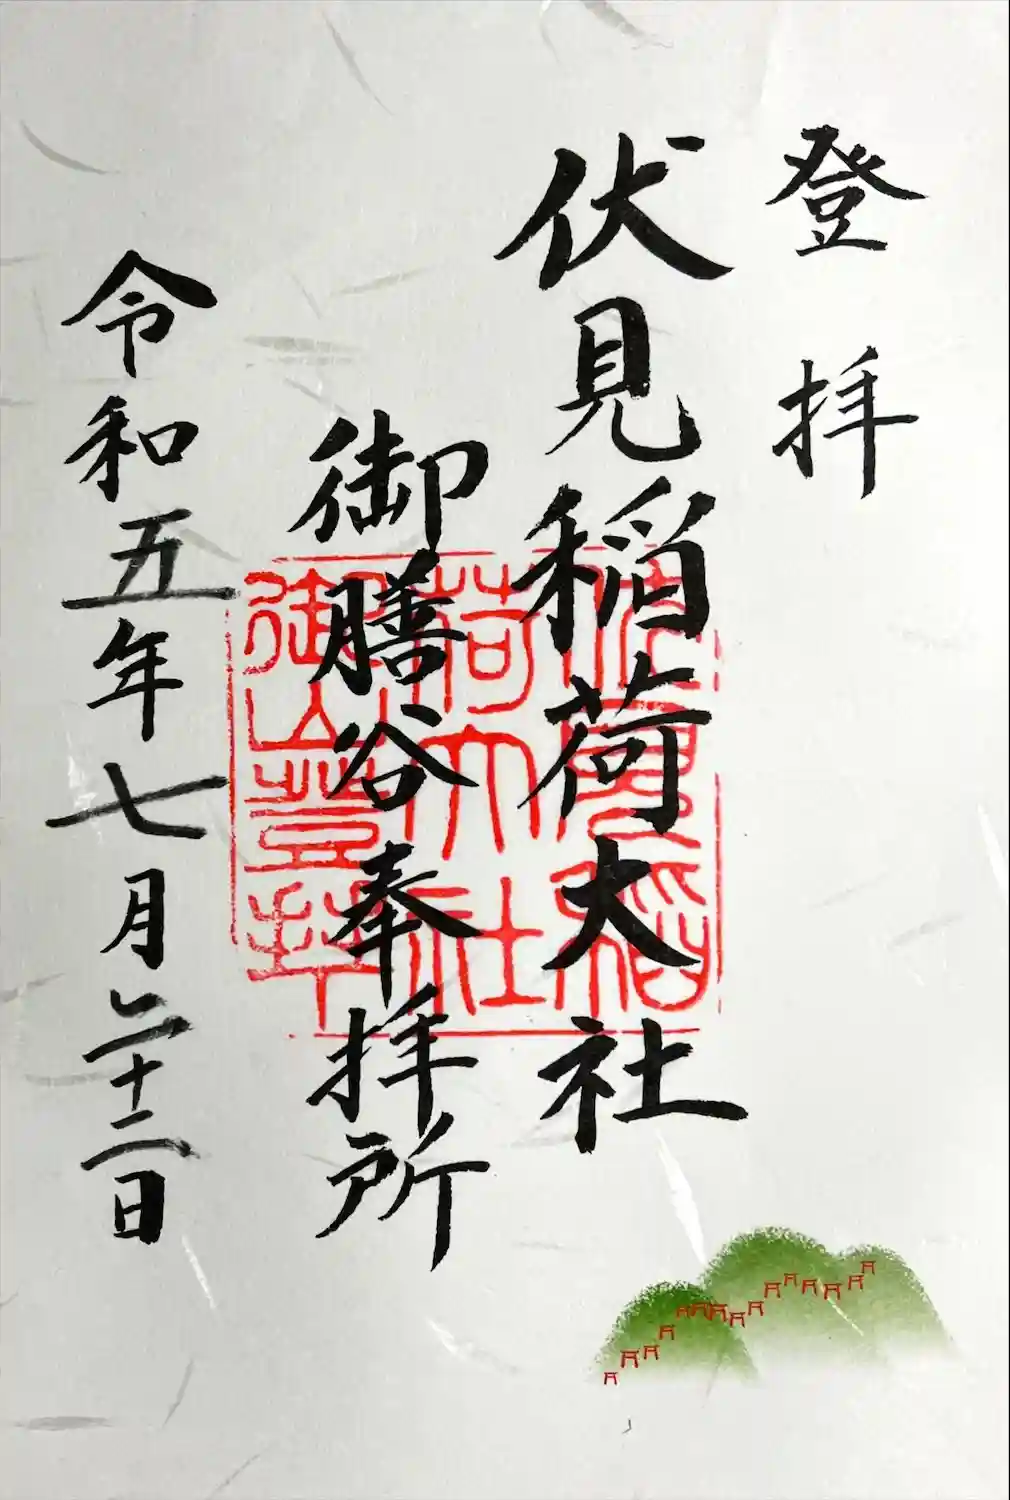 登拝
伏見稲荷大社
御膳谷奉拝所
令和五年七月二十二日
伏見稲
荷大社
御山登拝